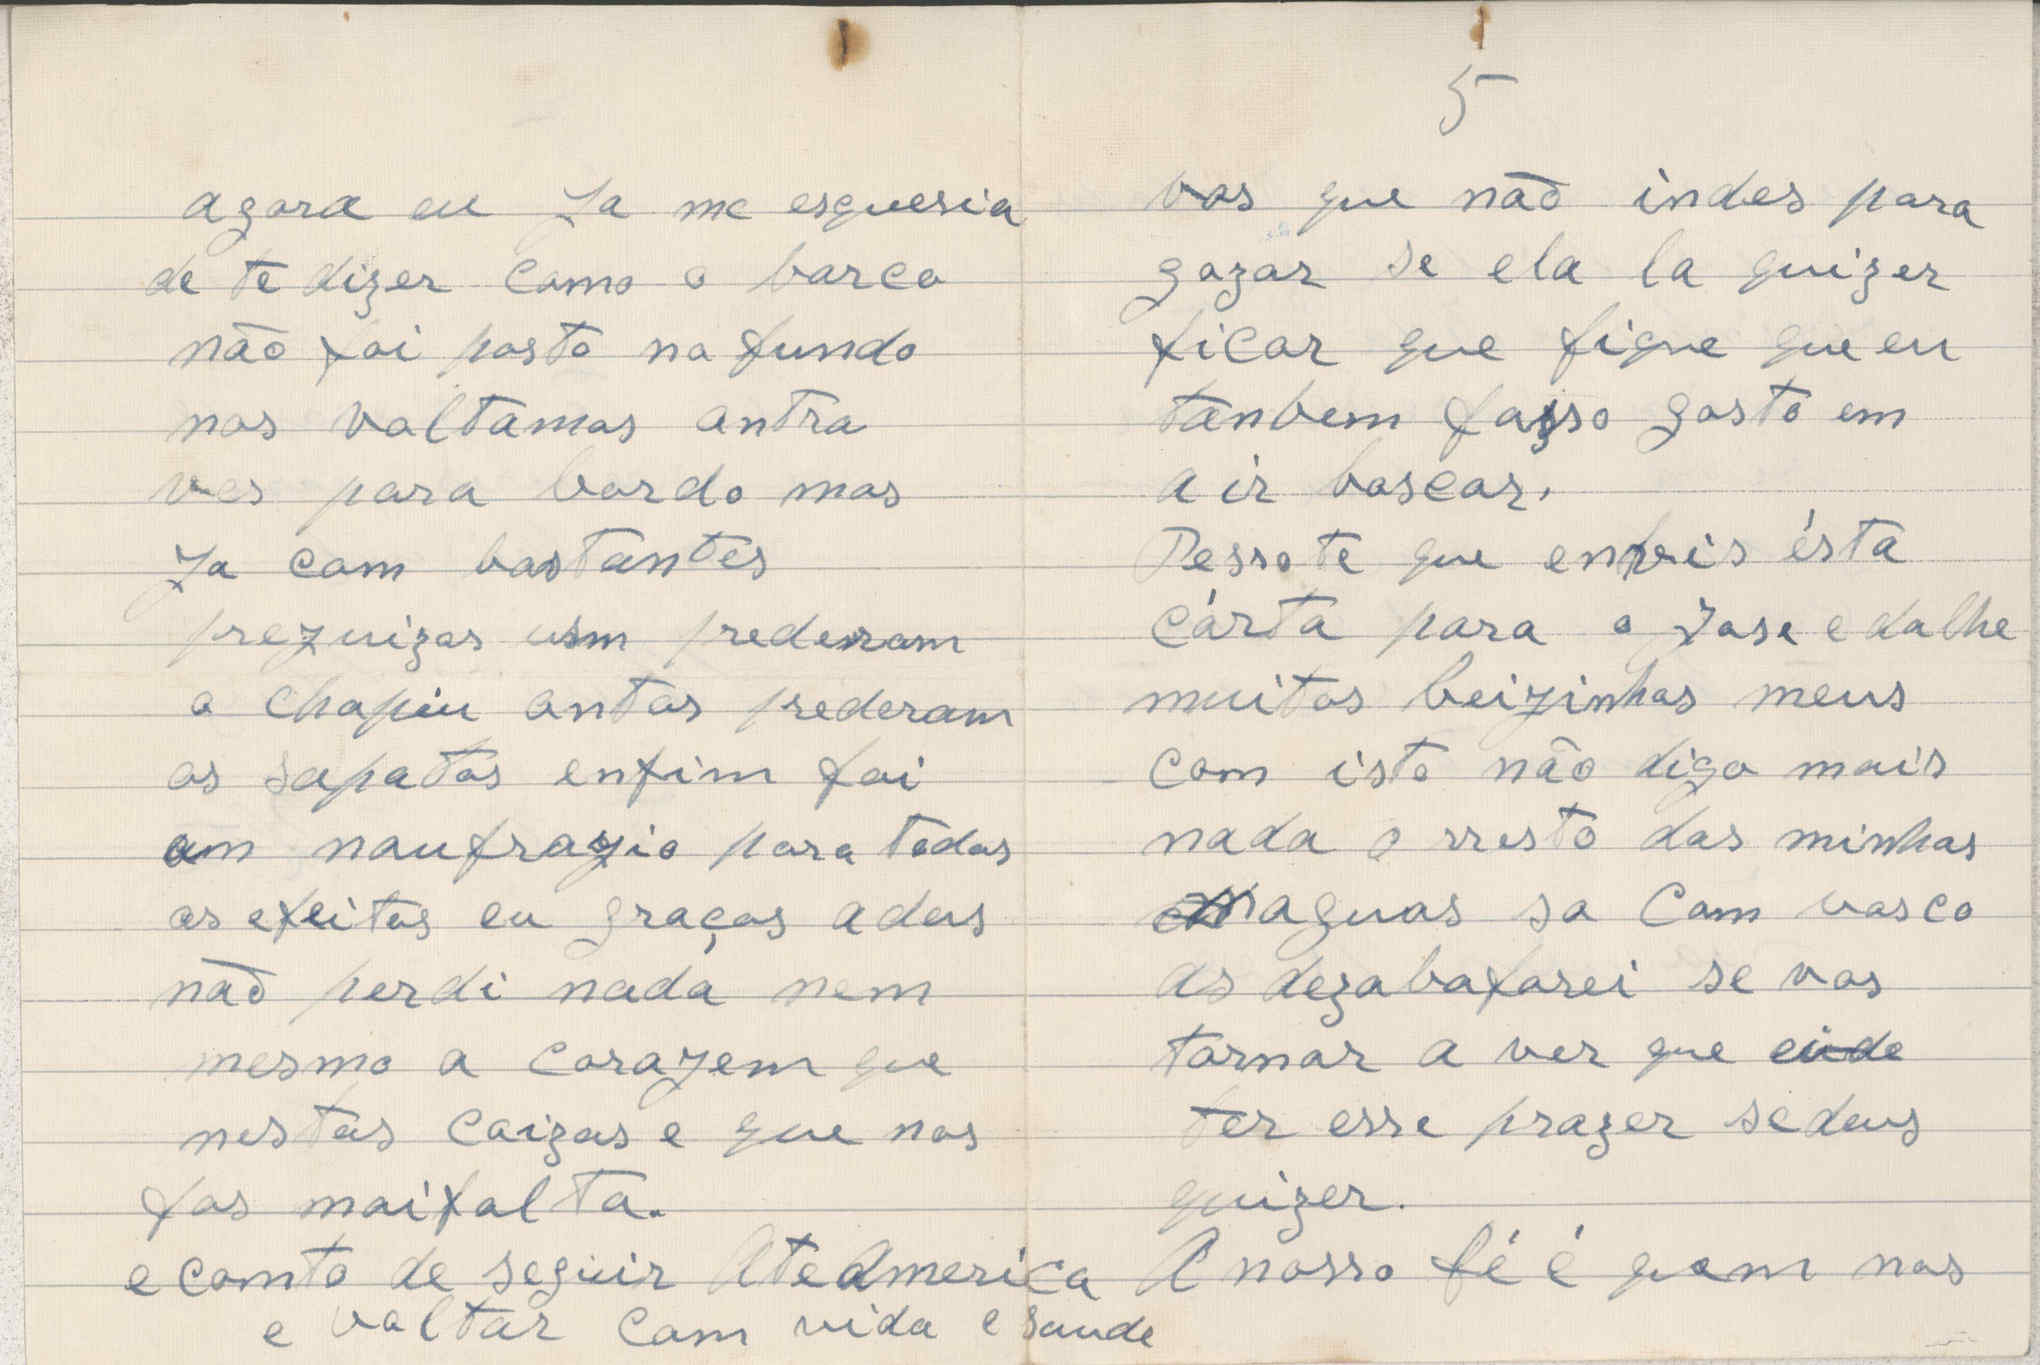 agora eu Ja me esquesia
de te dizer como o barco
não foi posto no fundo
nos voltamos outra
ves para bordo mas
Ja com bastantes
prezuizos usm prederam
o chapiu outos prederam
os sapatos enfim foi
um naufrazio para todos
os efeitos eu graças a deus
não perdi nada nem
mesmo a corajem que
nestas coizas e que nos
fas maifalta.
e comto de seguir Ate America
e voltar com vida e saude
5
vos que não indes para
gozar se ela la quizer
ficar que fique que eu
tanbem fasso gosto em
a ir boscar.
Pesso te que enveis ésta
cárta para o Jose e dalhe
muitos beizinhos meus
com isto não digo mais
nada o rresto das minhas
maguas so com vosco
as dezabafarei se vos
tornar a ver que eide
ter esse prazer se deus
quizer.
A nosso fé é quem nos